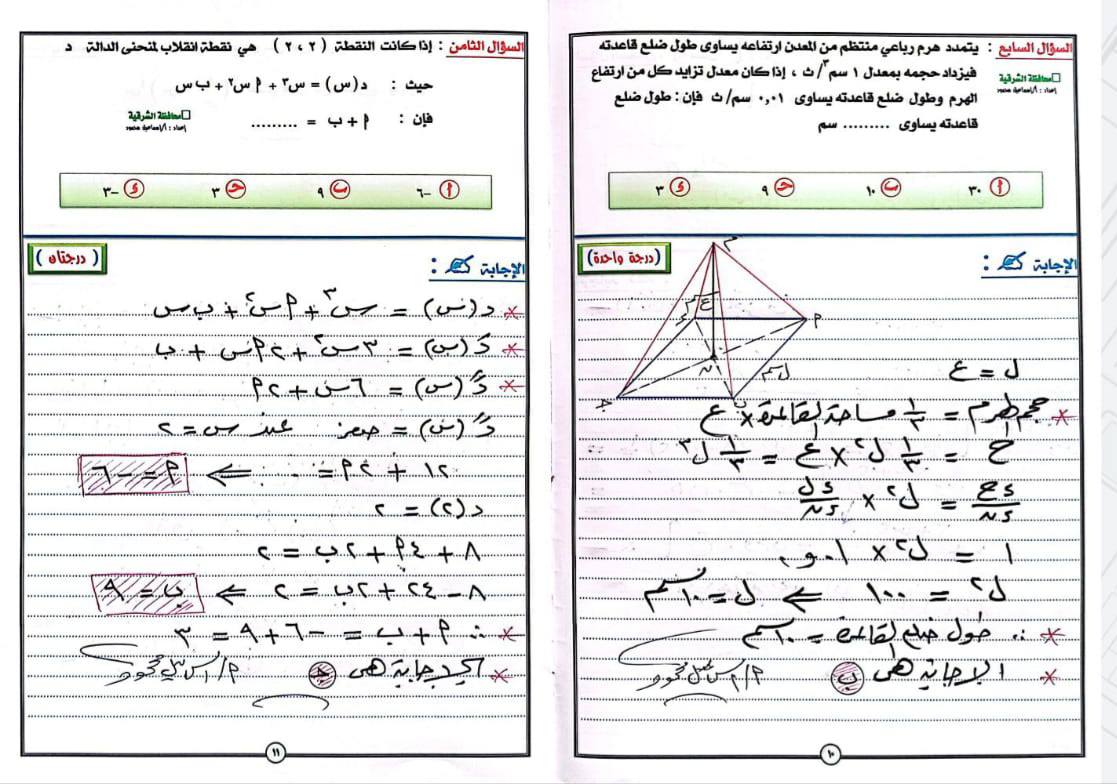 السؤال السابع : يتمدد هرم رباعي منتظم من المعدن ارتفاعه يساوى طول ضلع قاعدته
فيزداد حجمه بمعدل ١ سم٣/ث ، إذا كان معدل تزايد كل من ارتفاع
الهرم وطول ضلع قاعدته يساوى ٠,٠١ سم/ث فإن : طول ضلع
قاعدته يساوى ......... سم
محافظة الشرقية
أ ٣٠ ب ١٠ ج ٩ د ٣
الإجابة : (درجة واحدة)
م
ع سم
أ
ل سم
ن
ب
ج
ل = ع
حجم الهرم = ١/٣ مساحة القاعدة × ع
ح = ١/٣ ل٢ × ع = ١/٣ ل٣
ءح/ءن = ل٢ × ءل/ءن
١ = ل٢ × ٠,٠١
ل٢ = ١٠٠ ⇐ ل = ١٠ سم
∴ طول ضلع القاعدة = ١٠ سم
الإجابة هى ب
١٠
السؤال الثامن : إذا كانت النقطة ( ٢ ، ٢ ) هي نقطة انقلاب لمنحنى الدالة د
حيث : د(س) = س٣ + أ س٢ + ب س
فإن : أ + ب = .........
محافظة الشرقية
أ -٦ ب ٩ ج ٣ د -٣
الإجابة : ( درجتان )
د(س) = س٣ + أس٢ + ب س
دَ(س) = ٣س٢ + ٢أس + ب
دً(س) = ٦س + ٢أ
دً(س) = صفر عند س = ٢
١٢ + ٢أ = ٠ ⇐ أ = -٦
د(٢) = ٢
٨ + ٤أ + ٢ب = ٢
٨ - ٢٤ + ٢ب = ٢ ⇐ ب = ٩
∴ أ + ب = -٦ + ٩ = ٣
الإجابة هى ج
١١